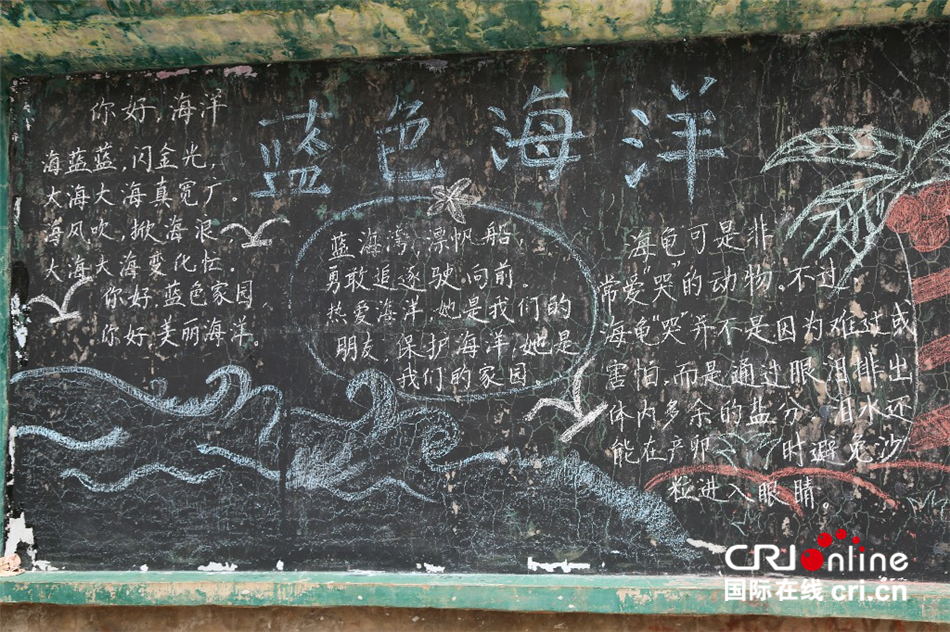 蓝色海洋
你好，海洋
海蓝蓝，闪金光，
大海大海真宽广。
海风吹，掀海浪，
大海大海变化忙。
你好，蓝色家园
你好，美丽海洋。
蓝海湾，漂帆船，
勇敢追逐驶向前。
热爱海洋，她是我们的
朋友，保护海洋，她是
我们的家园。
海龟可是非
常爱“哭”的动物。不过，
海龟“哭”并不是因为难过或
害怕，而是通过眼泪排出
体内多余的盐分，泪水还
能在产卵时避免沙
粒进入眼睛。
CRI Online
国际在线 cri.cn